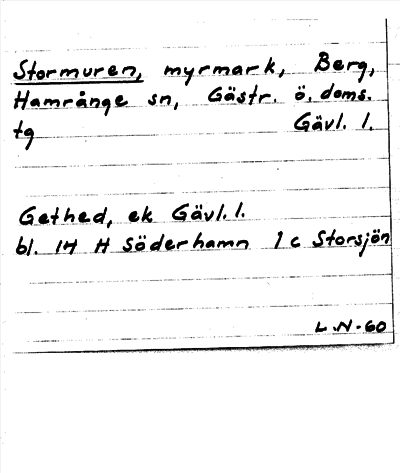 Stormuren, myrmark, Berg,
Hamrånge sn, Gästr. ö. doms.
tg Gävl. l.
Gethed, ek Gävl. l.
bl. 14 H Söderhamn 1 c Storsjön
L.N-60